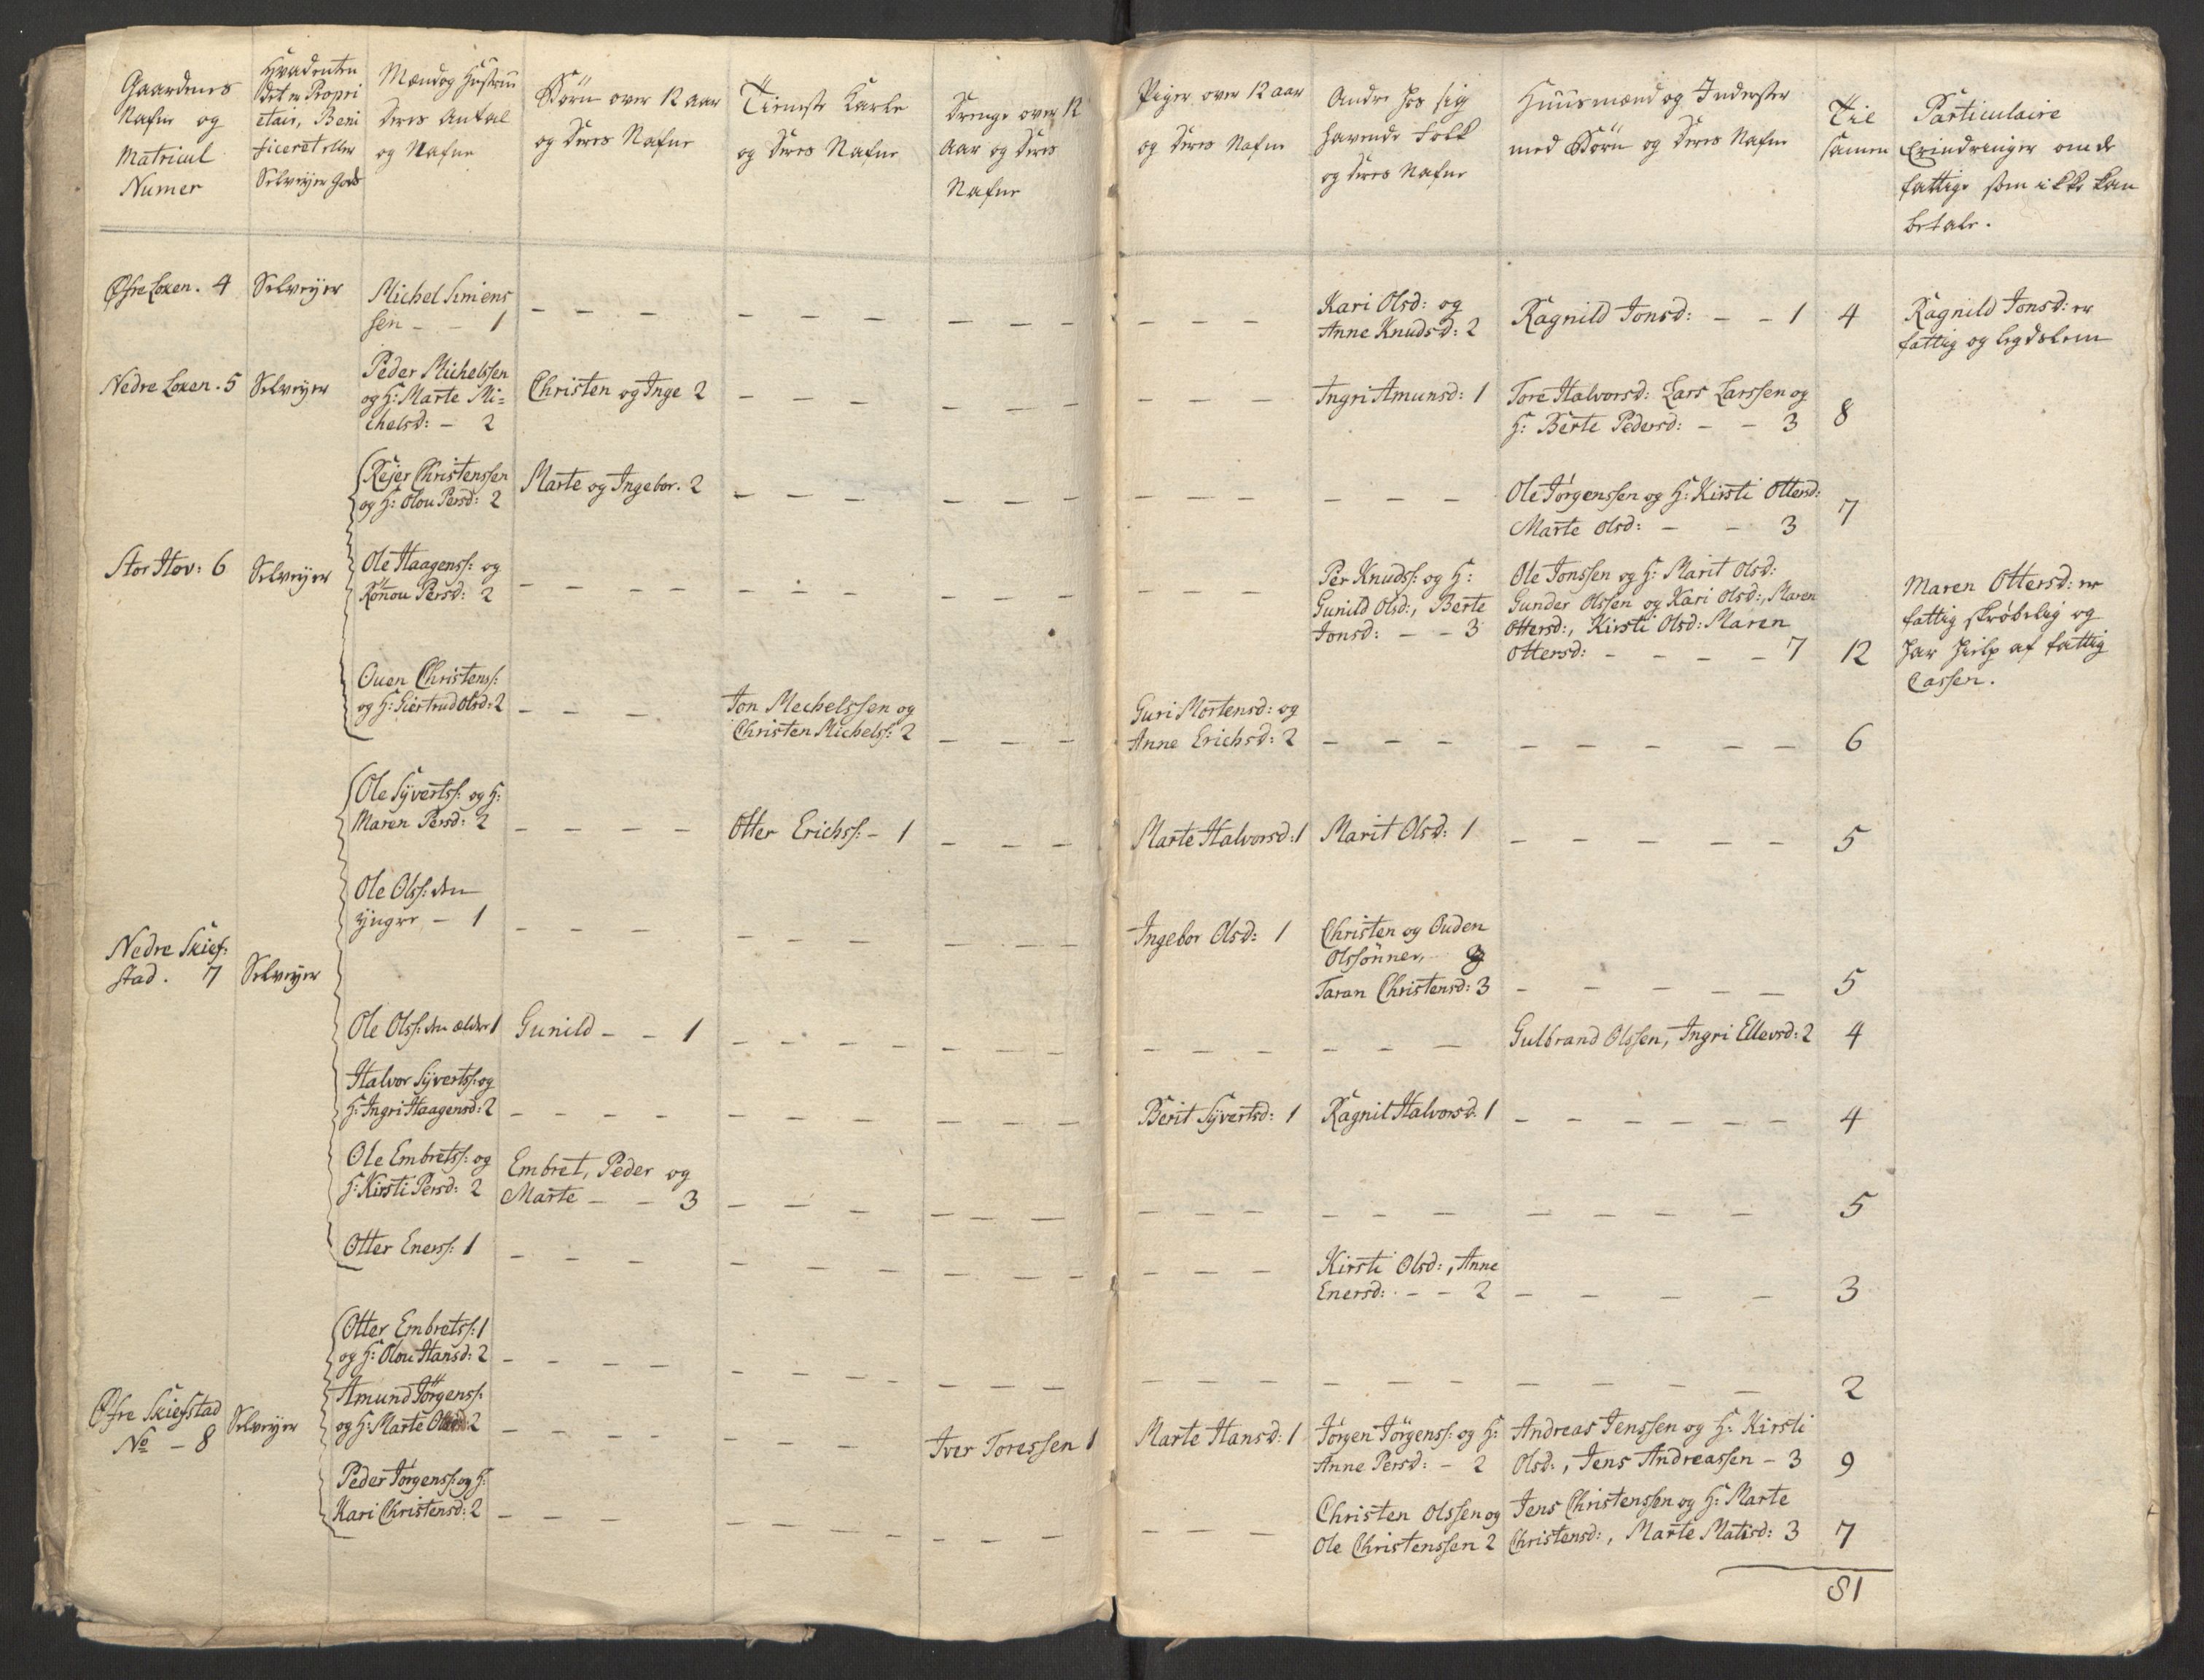 Gaardenes
Nafne og
Matricul
Numer
Hvadenten
det er Propri
etair, Beni
ficeret eller
Selveyer Gods
Mænd og Hustruer
Deres Antal
og Nafne
Börn over 12 aar
og Deres Nafne
Tieneste Karle
og Deres Nafne
Drenge over 12
Aar og Deres
Nafne
Piger over 12 aar
og Deres Nafne
Andre hos sig
havende Folk
og deres Nafne
Huusmænd og Inderster
med Börn og Deres Nafne
Til
samen
Particulaire
Erindringer om de
fattige som ikke kan
betale.
Øfre Loxen. 4 Selveyer Michel Simens
sen - - 1 - - - - - - - - - - - - Kari Olsd: og
Anne Knudsd: 2 Ragnild Jonsd: - - 1 4 Ragnild Jonsd: er
fattig og legdslem
Nedre Loxen. 5 Selveyer Peder Michelssen
og H: Marte Mi=
chelsd: - 2 Christen og Inge 2 - - - - - - - - - Ingri Amunsd: 1 Tore Halvorsd: Lars Larssen og
H: Berte Pedersd: - - 3 8
Rejer Christenssen
og H: Olou Persd: 2 Marte og Ingebor. 2 - - - - - - - - - - - - Ole Jörgenssen og H: Kirsti Ottersd:
Marte Olsd: - - 3 7
Stor Hov: 6 Selveyer Ole Haagenss: og
Rönou Persd: 2 - - - - - - - - - - - - - Per Knudss: og H:
Gunild Olsd:, Berte
Jonsd: - - 3 Ole Jonssen og H: Marit Olsd:
Gunder Olssen og Kari Olsd:, Maren
Ottersd:, Kirsti Olsd: Maren
Ottersd: - - - - 7 12 Maren Ottersd: er
fattig skröbelig og
har hielp af fattig
Cassen.
Ouen Christenss:
og H: Giertrud Olsd: 2 - - - Jon Mechelssen og
Christen Michelss: 2 - - - Guri Mortensd: og
Anne Erichsd: 2 - - - - - - - - - 6
Ole Syvertss: og H:
Maren Persd: 2 - - - - Otter Erichss: - 1 - - - Marte Halvorsd: 1 Marit Olsd: 1 - - - - - 5
Nedre Skief=
stad. 7 Selveyer
Ole Olss: den
yngre - 1 - - - - - - - - - - Ingebor Olsd: 1 Christen og Ouden
Olssönner,
Taran Christensd: 3 - - - - - 5
Ole Olss: den ældre 1 Gunild - - 1 - - - - - - - - - - - - - Gulbrand Olssen, Ingri Ellevsd: 2 4
Halvor Syvertss: og
H: Ingri Haagensd: 2 - - - - - - - - - - Berit Syvertsd: 1 Ragnil Halvorsd: 1 - - - - - - 4
Ole Embretss: og
H: Kirsti Persd: 2 Embret, Peder og
Marte - - 3 - - - - - - - - - - - - - - - - - 5
Otter Enerss: 1 - - - - - - - - - - - - - - Kirsti Olsd:, Anne
Enersd: - - 2 - - - - 3
Otter Embretss: 1
og H: Olou Hansd: 2 - - - - - - - - - - - - - - - - - - - - - 2
Øfre Skiefstad
No - 8 Selveyer Amund Jörgenss:
og H: Marte 2 - - - - - - - Iver Toressen 1 Marte Hansd: 1 Jörgen Jörgenss: og H:
Anne Persd: - 2 Andreas Jenssen og H: Kirsti
Olsd:, Jens Andreassen - 3 9
Peder Jörgenss: og H:
Kari Christensd: 2 - - - - - - - - - - - - - Christen Olssen og
Ole Christenssen 2 Jens Christenssen og H: Marte
Christensd:, Marte Matisd: 3 7
81